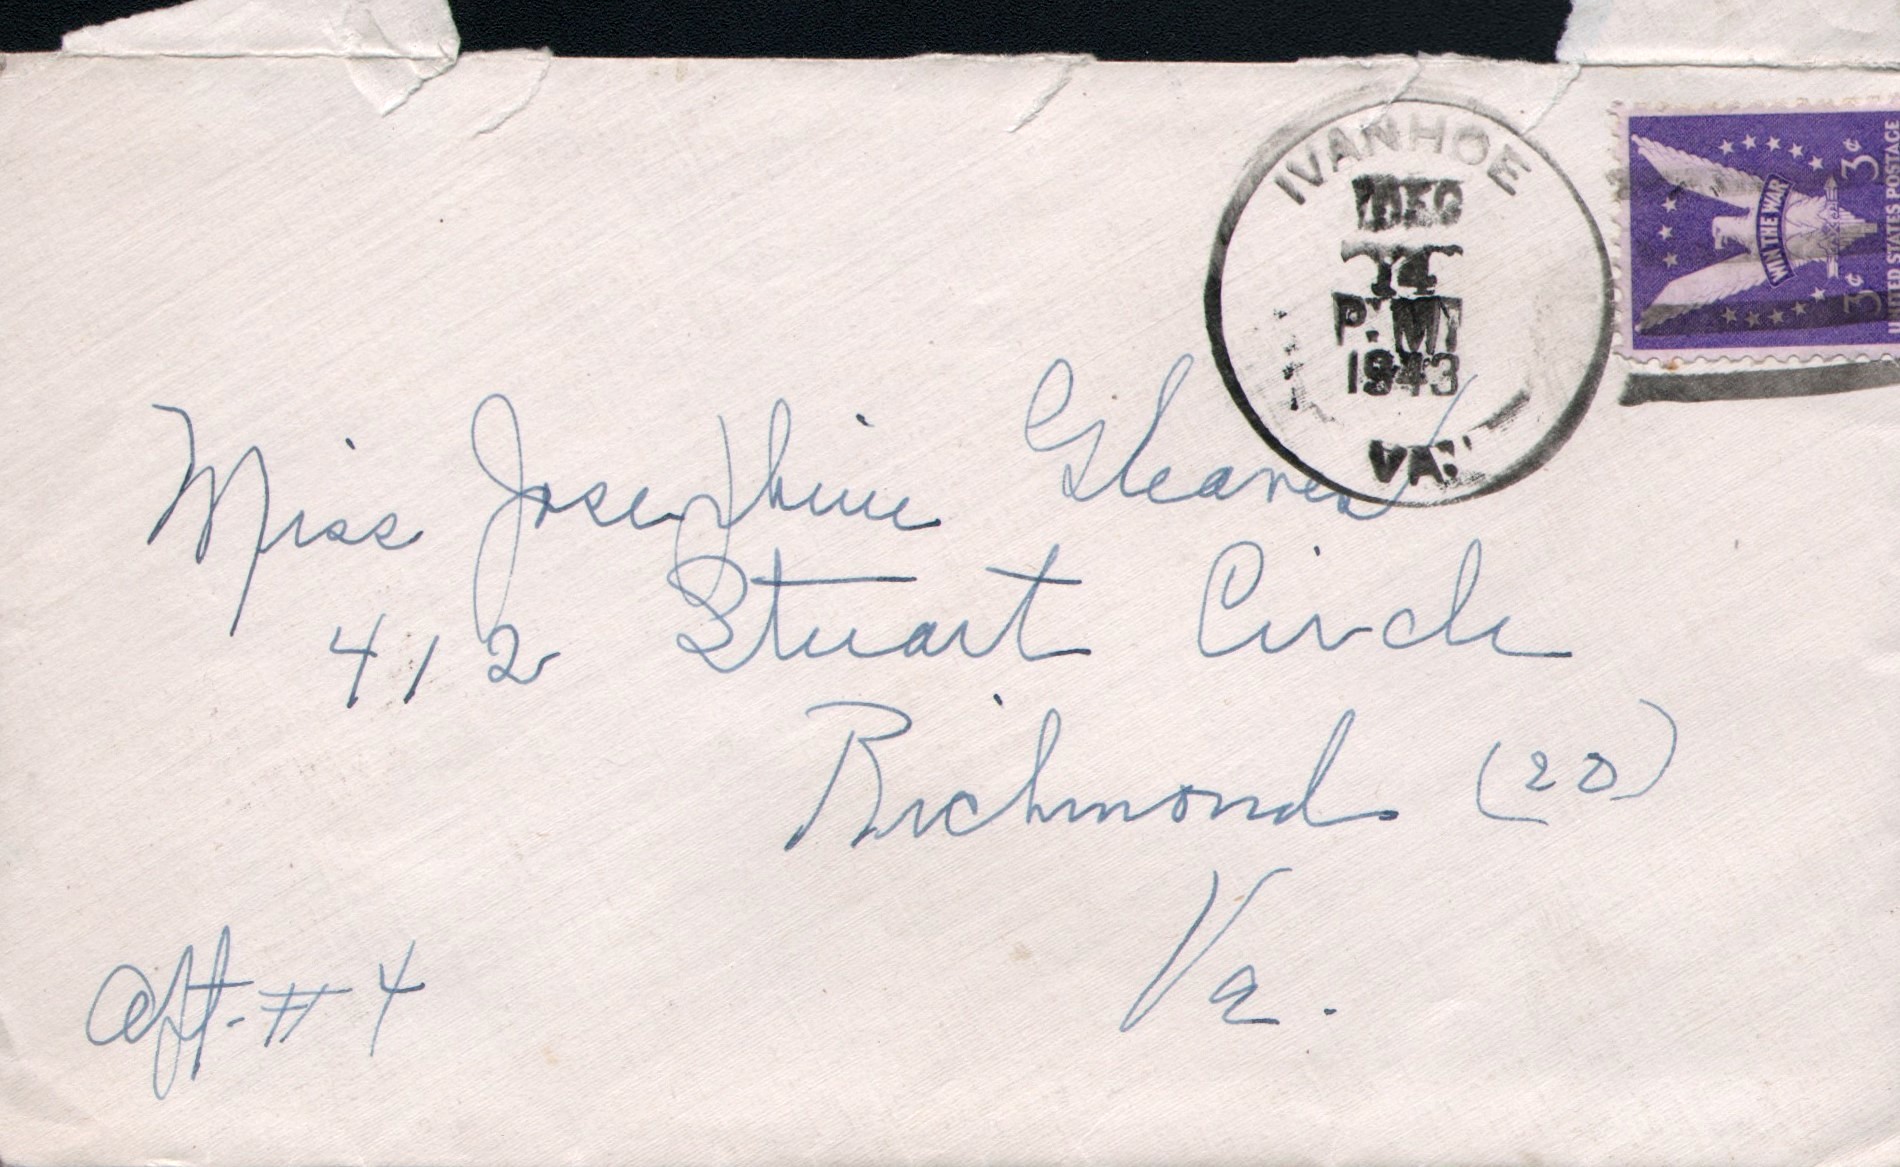 IVANHOE
DEC
14
P.M
1943
VA.
WIN THE WAR
3¢ 3¢
UNITED STATES POSTAGE
Miss Josephine Gleaves
412 Stuart Circle
Richmond (20)
Va.
Apt. #4